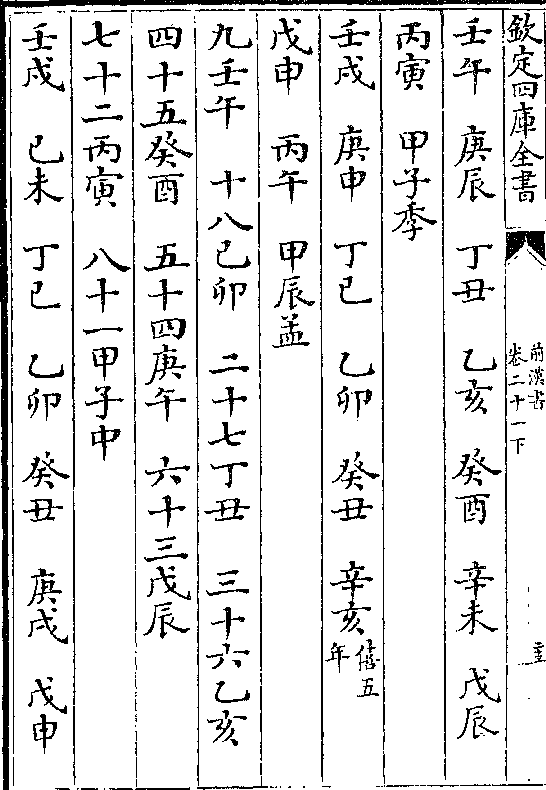 欽定四庫全書
前漢書
卷二十一下
壬午 庚辰 丁丑 乙亥 癸酉 辛未 戊辰
丙寅 甲子季
壬戌 庚申 丁巳 乙卯 癸丑 辛亥僖五年
戊申 丙午 甲辰孟
九壬午 十八己卯 二十七丁丑 三十六乙亥
四十五癸酉 五十四庚午 六十三戊辰
七十二丙寅 八十一甲子中
壬戌 己未 丁巳 乙卯 癸丑 庚戌 戊申